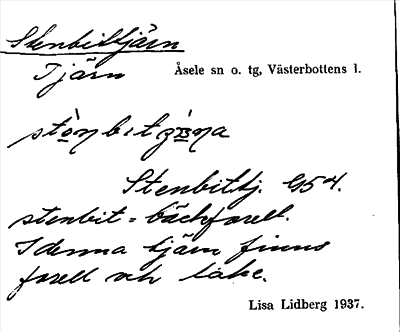 Stenbittjärn
Tjärn
Åsele sn o. tg, Västerbottens l.
Stenbittj.
stenbit = bäckforell.
I denna tjärn finns
forell och lake.
Lisa Lidberg 1937.